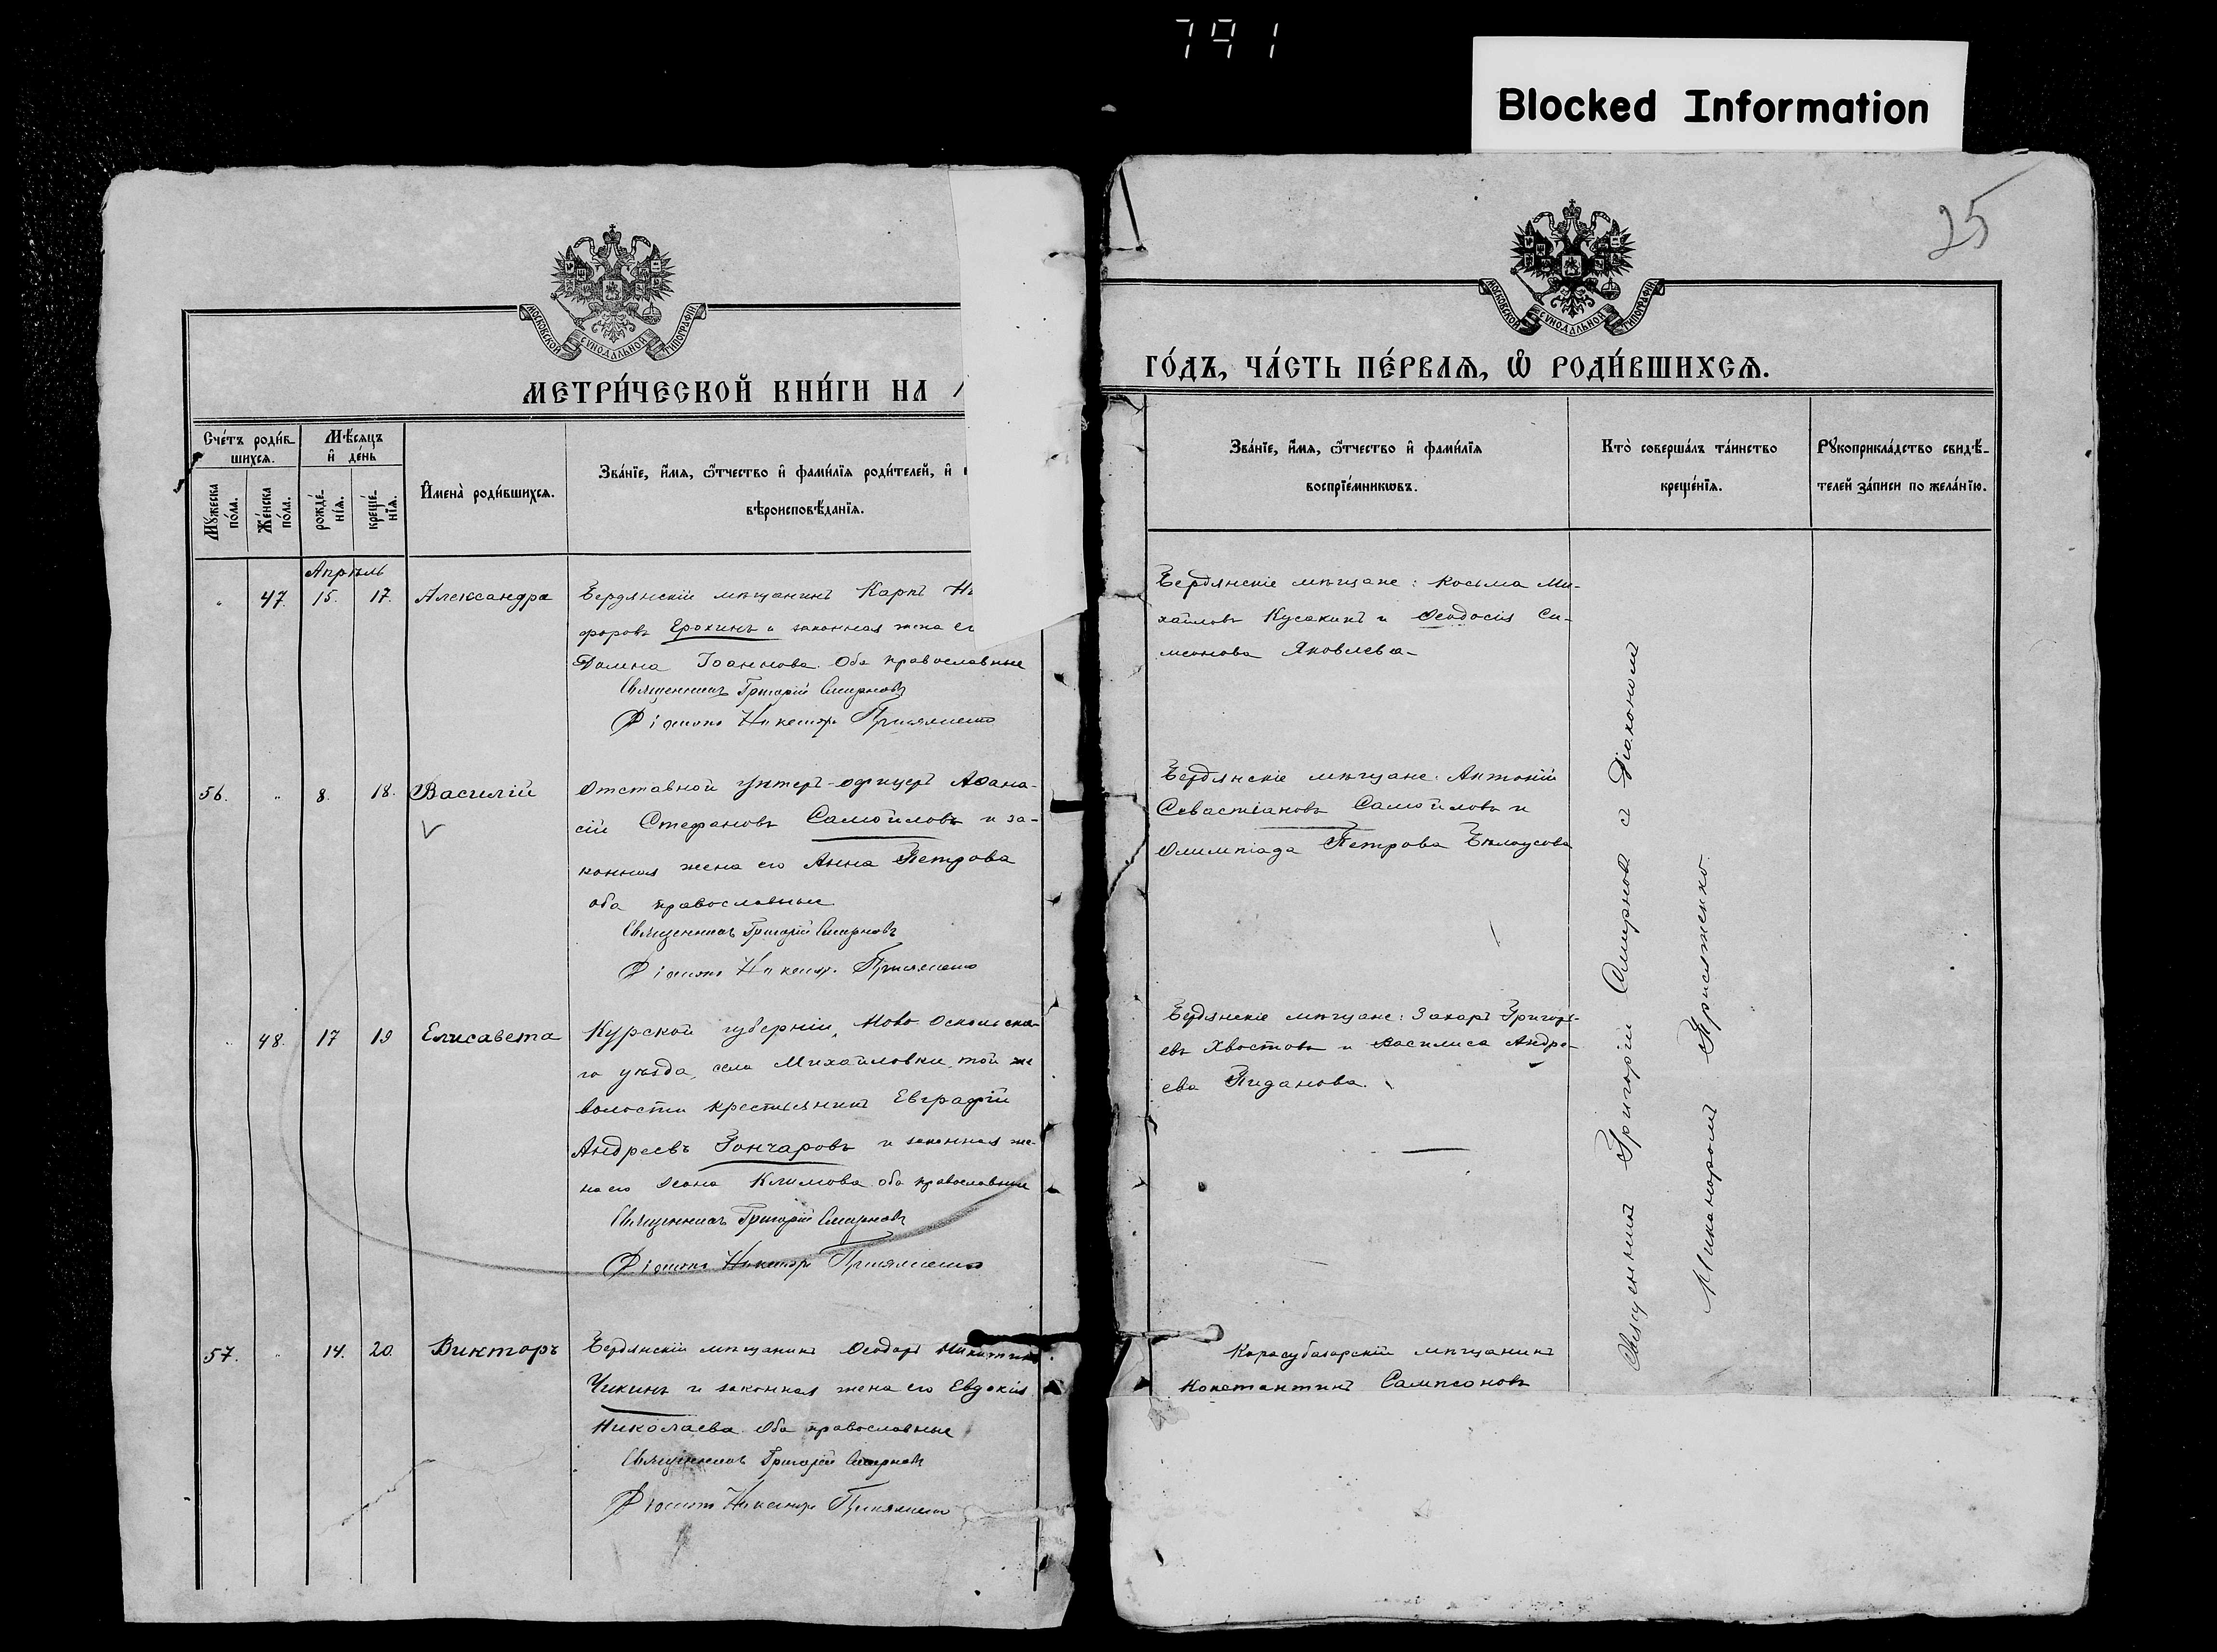 791
Blocked Information
25
МОСКОВСКОЙ СѴНОДАЛЬНОЙ ТИПОГРАФІИ
МОСКОВСКОЙ СѴНОДАЛЬНОЙ ТИПОГРАФІИ
МЕТРИ́ЧЕСКОЙ КНИ́ГИ НА 1
ГО́ДЪ, ЧА́СТЬ ПЕ́РВАѦ, Ѡ҆ РОДИ́ВШИХСѦ.
Сче́тъ роди́в-
шихсѧ.
Мꙋ́жеска
по́ла.
Же́нска
по́ла.
Мѣ́сѧцъ
и҆ де́нь
рожде́-
нїѧ.
креще́-
нїѧ.
И҆мена̀ роди́вшихсѧ.
Зва́нїе, и҆́мѧ, ѻ҆́тчество и҆ фами́лїѧ роди́телей, и҆
вѣроисповѣ́данїѧ.
Зва́нїе, и҆́мѧ, ѻ҆́тчество и҆ фами́лїѧ
воспрїе́мникωвъ.
Кто̀ соверша́лъ та́инство
креще́нїѧ.
Рꙋкоприкла́дство свидѣ́-
телей за́писи по жела́нїю.
Апрѣль
47. 15. 17. Александра
Бердянскій мѣщанинъ Карпъ Ни
форовъ Ерохинъ и законная жена ег
Домна Іоаннова. Оба православные
Священникъ Григорій Смирновъ
Діаконъ Никаноръ Присяженко
Бердянскіе мѣщане: Косьма Ми-
хайловъ Кусакинъ и Ѳеодосія Си-
меонова Яковлева
56. 8. 18. Василій
Отставной унтеръ-офицеръ Аѳана-
сій Стефановъ Самойловъ и за-
конная жена его Анна Петрова
оба православные
Священникъ Григорій Смирновъ
Діаконъ Никаноръ Присяженко
Бердянскіе мѣщане: Антоній
Севастіановъ Самойловъ и
Олимпіада Петрова Бѣлоусова
48. 17 19 Елисавета
Курской губерніи, Ново Оскольска-
го уѣзда, села Михайловки, той же
волости крестьянинъ Евграфій
Андреевъ Гончаровъ и законная же-
на его Климова оба православные
Священникъ Григорій Смирновъ
Діаконъ Никаноръ Присяженко
Бердянскіе мѣщане: Захаръ Григорь-
евъ Хвостовъ и Василиса Андре-
ева Пиданова.
57. 14. 20. Викторъ
Бердянскій мѣщанинъ Ѳеодоръ Никитинъ
Чикинъ и законная жена его Евдокія
Николаева. Оба православные
Священникъ Григорій Смирновъ
Діаконъ Никаноръ Присяженко
Карасубазарскій мѣщанинъ
Константинъ Сампсоновъ
Священникъ Григорій Смирновъ съ Діакономъ
Никаноромъ Присяженко.